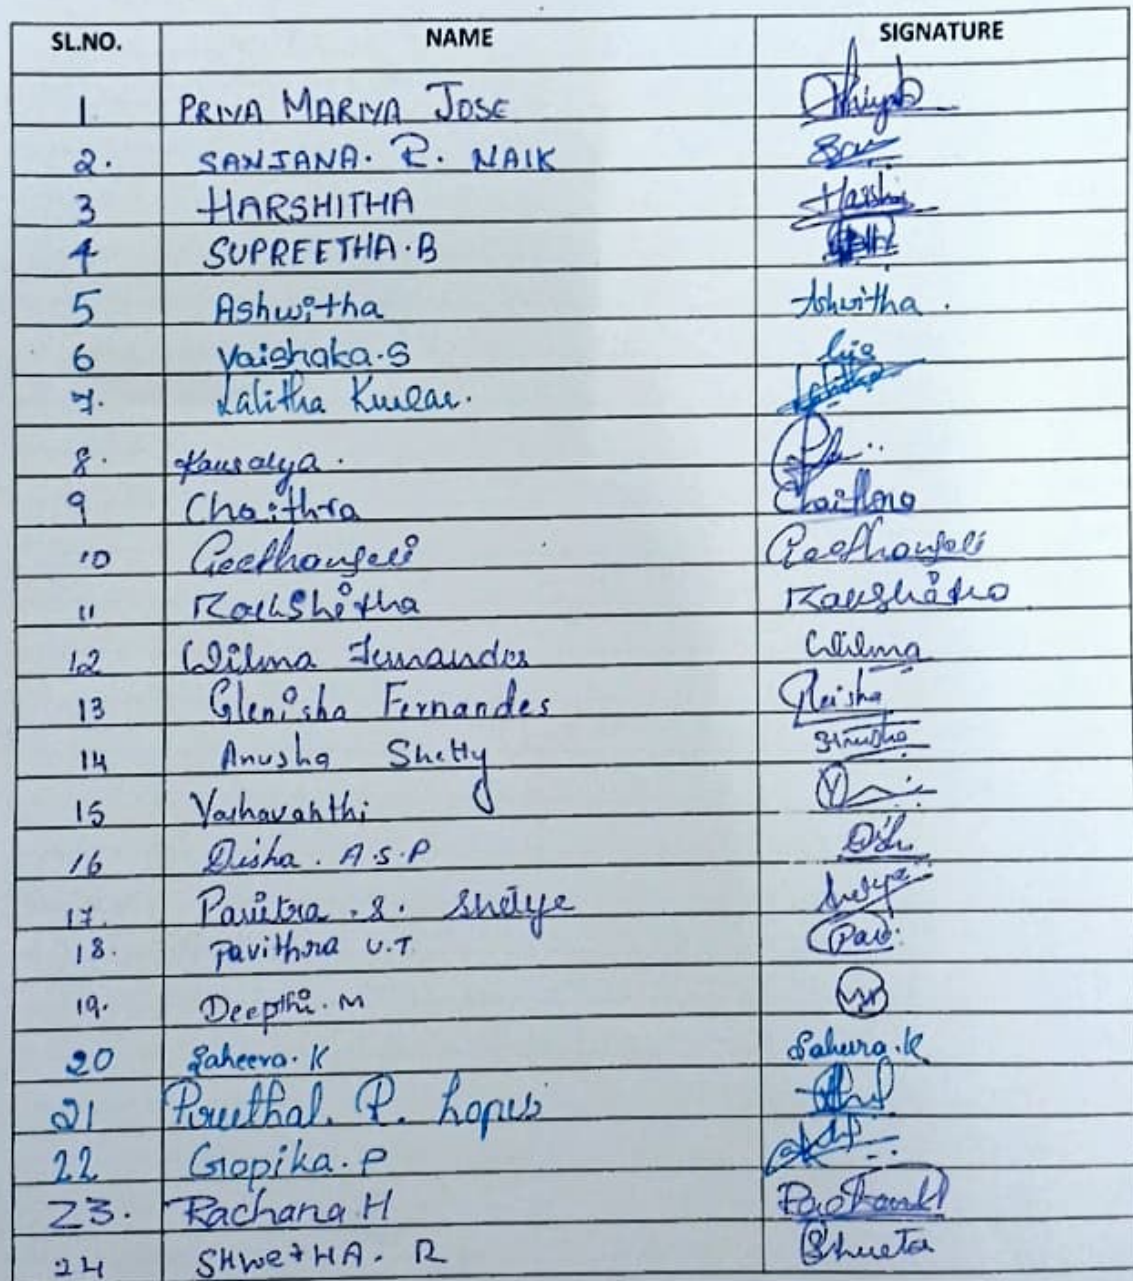 SL.NO. NAME SIGNATURE
1. PRIYA MARIYA JOSE
2. SANJANA. R. NAIK
3 HARSHITHA Harshi
4 SUPREETHA.B
5 Ashwitha Ashwitha.
6 Vaishaka.S
7. Lalitha Lalitha
8. Kausalya.
9 Chaithra Chaithra
10 Geethanjali Geethanjali
11 Rakshitha Rakshitha
12 Wilma Fernandes Wilma
13 Glenisha Fernandes Gleisha
14 Anusha Shetty Anusha
15 Yashavanthi
16 Disha. A.S.P
17. Pavitra. S. Shetye Shetye
18. Pavithra U.T Pavi
19. Deepthi. M
20 Saheera. K Sahura.K
21 P. Lopes
22 Gopika. P
23. Rachana H
24 SHWETHA. R Shweta